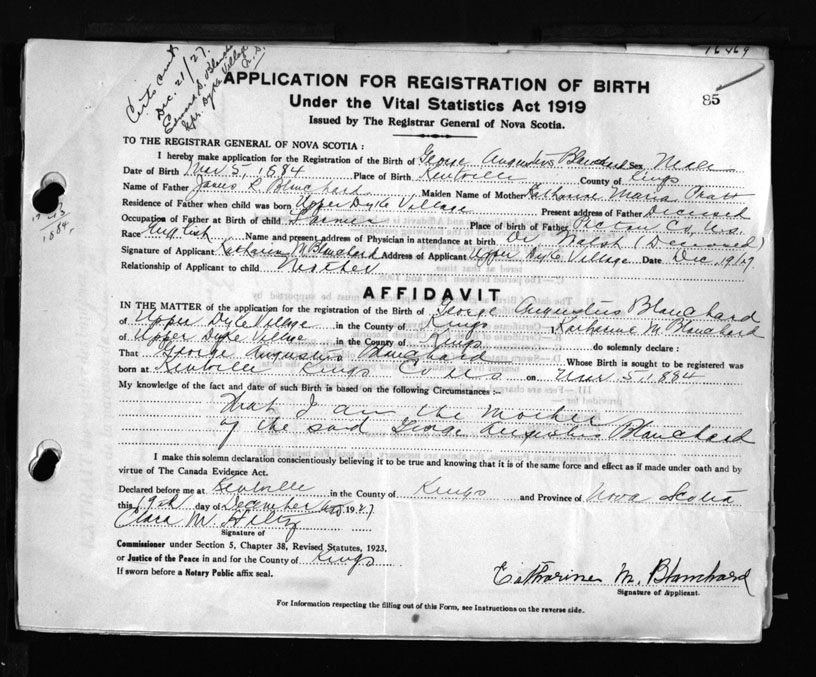 16469
85
Dec. 21/27.
Upr. Dyke Village
N. S.
APPLICATION FOR REGISTRATION OF BIRTH
Under the Vital Statistics Act 1919
Issued by The Registrar General of Nova Scotia.
TO THE REGISTRAR GENERAL OF NOVA SCOTIA:
I hereby make application for the Registration of the Birth of George Augustus Blanchard Sex Male
Date of Birth Mar 5, 1884 Place of Birth Kentville County of Kings
Name of Father James R Blanchard Maiden Name of Mother Katharine Maria Pratt
Residence of Father when child was born Upper Dyke Village Present address of Father Deceased
Occupation of Father at Birth of child Farmer Place of birth of Father Pictou Co, N.S.
Race English Name and present address of Physician in attendance at birth Dr Walsh (Deceased)
Signature of Applicant Katharine M Blanchard Address of Applicant Upper Dyke Village Date Dec. 19/27.
Relationship of Applicant to child Mother
1884
AFFIDAVIT
IN THE MATTER of the application for the registration of the Birth of George Augustus Blanchard
of Upper Dyke Village in the County of Kings, Katharine M Blanchard
of Upper Dyke Village in the County of Kings do solemnly declare:
That George Augustus Blanchard Whose Birth is sought to be registered was
born at Kentville Kings Co N.S on Mar 5, 1884
My knowledge of the fact and date of such Birth is based on the following Circumstances:-
That I am the Mother
of the said George Augustus Blanchard
I make this solemn declaration conscientiously believing it to be true and knowing that it is of the same force and effect as if made under oath and by
virtue of The Canada Evidence Act.
Declared before me at Kentville in the County of Kings and Province of Nova Scotia
this 19th day of December A.D. 1927.
Clara M.
Signature of
Commissioner under Section 5, Chapter 38, Revised Statutes, 1923,
or Justice of the Peace in and for the County of Kings
If sworn before a Notary Public affix seal.
Catharine M. Blanchard
Signature of Applicant.
For Information respecting the filling out of this Form, see Instructions on the reverse side.